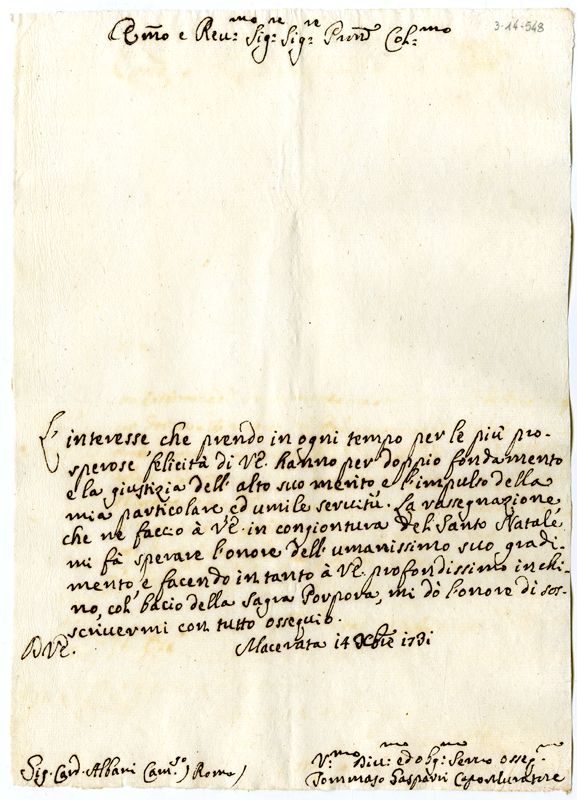 3-14-548
Em̃o e Reu:mo Sig:re Sig:re Pron̄e Col:mo
L' interesse che prendo in ogni tempo per le più pro-
sperose felicità di VE. hanno per doppio fondamento
e la giustizia dell' alto suo merito e l'impulso della
mia particolare ed umile servitù. La rassegnazione
che ne faccio à VE. in congiontura del Santo Natale
mi fà sperare l'onore dell' umanissimo suo gradi-
mento e facendo intanto à VE. profondissimo inchi-
no, col bacio della Sagra Porpora, mi dò l'onore di sot-
scrivermi con tutto ossequio.
D VE.
Macerata 14 Xbre 1731
Sig. Card. Albani Cam:go) Roma)
V:mo Div:mo ed obg:mo Servo osseq:mo
Tommaso Gasparri Capo Muratore